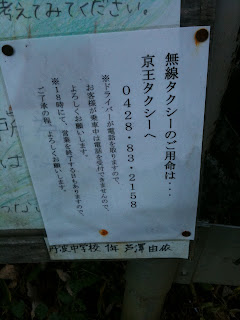 考えてみてください。
無線タクシーのご用命は・・・
京王タクシーへ
0428・83・2158
※ドライバーが電話を取りますので、
お客様が乗車中は電話を受付できませんので、
よろしくお願いします。
※18時にて、営業を終了する日もありますので、
ご了承の程、よろしくお願いします。
丹波中学校 1年 芦澤 由依